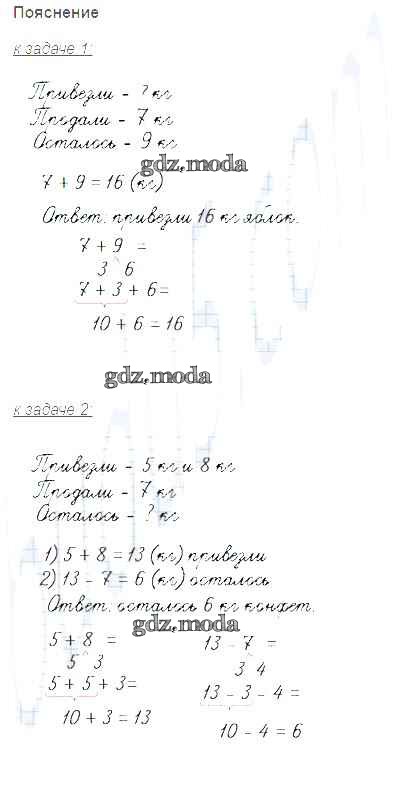 Пояснение
к задаче 1:
Привезли - ? кг
Продали - 7 кг
Осталось - 9 кг
gdz.moda
7 + 9 = 16 (кг)
Ответ: привезли 16 кг яблок.
7 + 9 =
3 6
7 + 3 + 6 =
10 + 6 = 16
gdz.moda
к задаче 2:
Привезли - 5 кг и 8 кг
Продали - 7 кг
Осталось - ? кг
1) 5 + 8 = 13 (кг) привезли
2) 13 - 7 = 6 (кг) осталось
Ответ: осталось 6 кг конфет.
gdz.moda
5 + 8 = 13 - 7 =
5 3 3 4
5 + 5 + 3 = 13 - 3 - 4 =
10 + 3 = 13 10 - 4 = 6